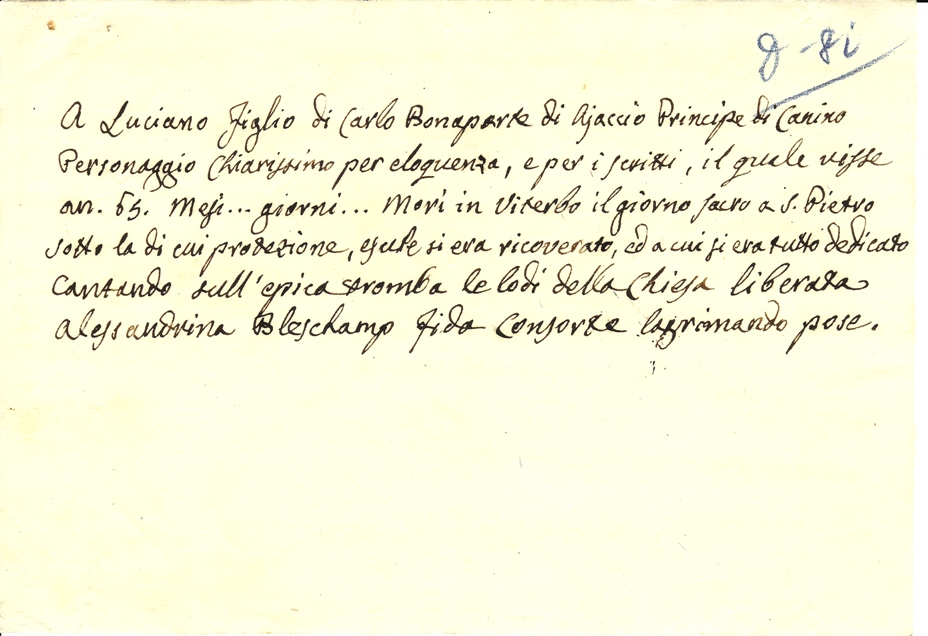 8-8i
A Luciano figlio di Carlo Bonaparte di Ajaccio Principe di Canino
Personaggio Chiarissimo per eloquenza, e per i scritti, il quale visse
an. 65. Mesi... giorni... Morì in Viterbo il giorno sacro a S. Pietro
sotto la di cui protezione, esule si era ricoverato, ed a cui si era tutto dedicato
Cantando sull'epica tromba le lodi della Chiesa liberata
Alessandrina Bleschamp fida Consorte lagrimando pose.